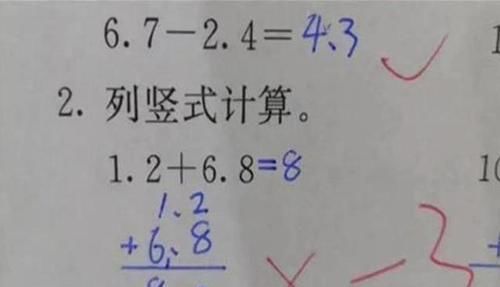 6.7－2.4＝4.3
2. 列竖式计算。
1.2＋6.8=8 10
1.2
+6.8
-3